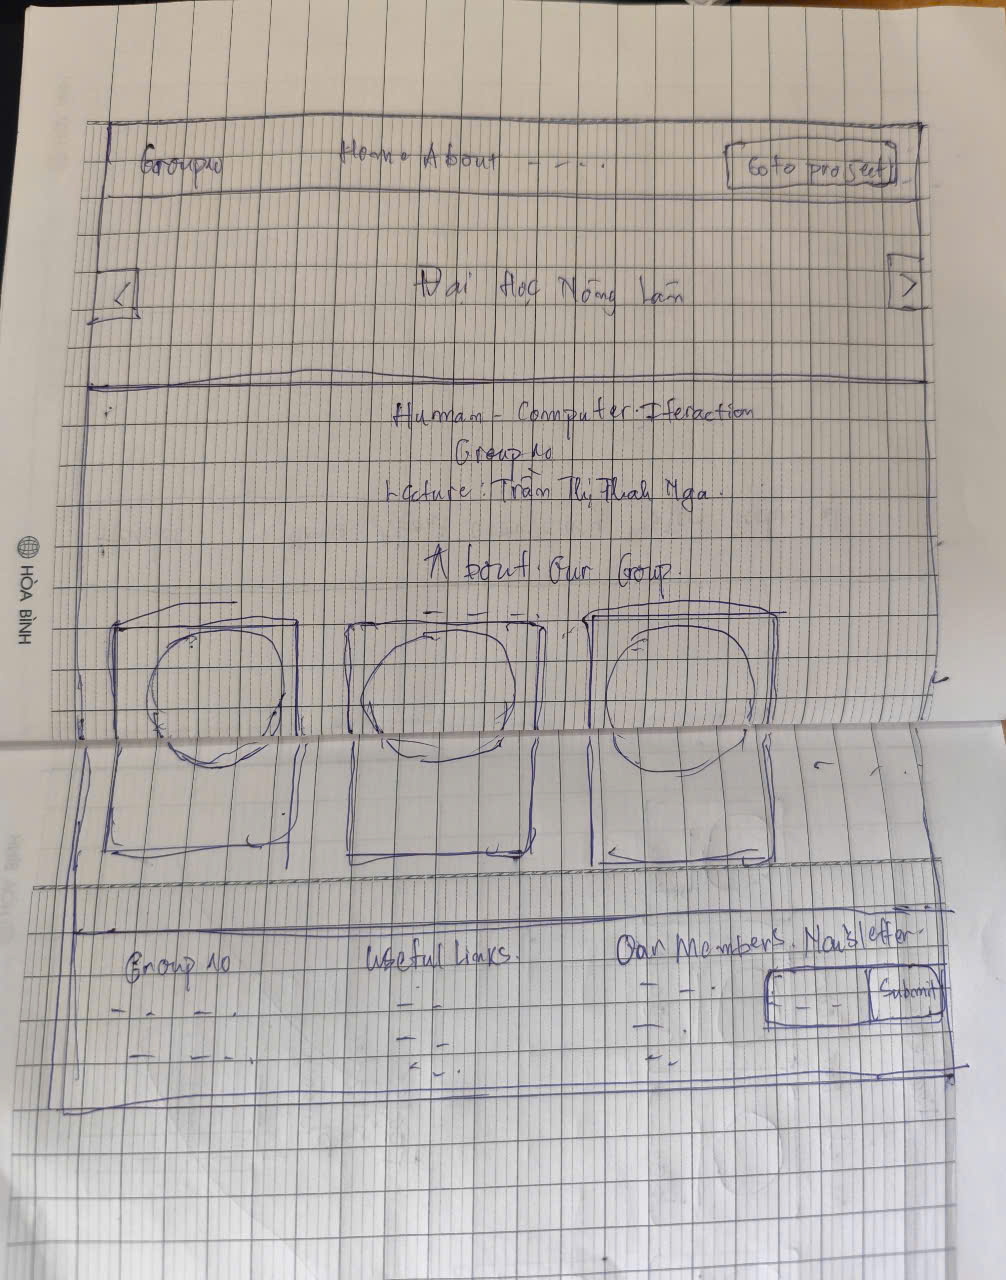 Group no Home About Goto project
< Đại Học Nông Lâm >
Human - Computer Iteraction
Group no
Lecture: Trần Thị Thah Nga.
About Our Group.
HÒA BÌNH
Group no Useful Links. Our Members. Newsletter
Submit